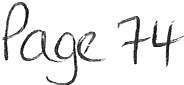 Page 74